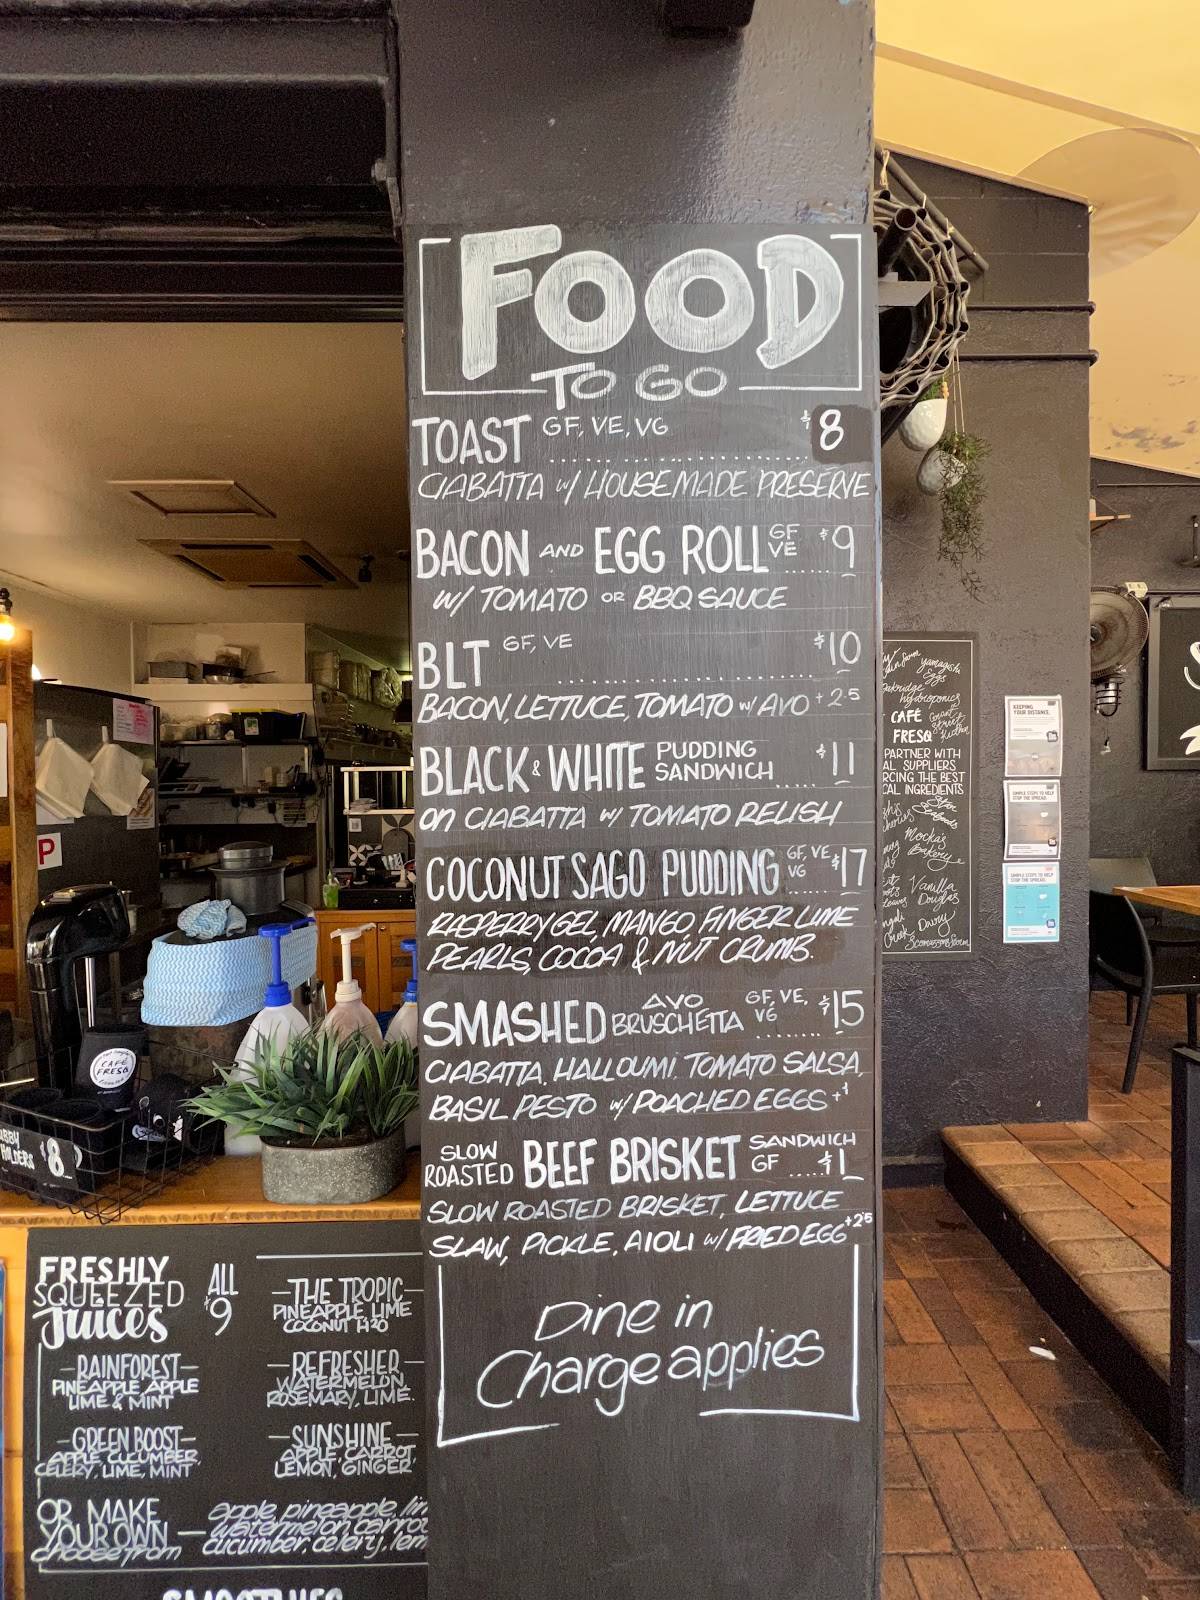 FOOD
TO GO
TOAST GF, VE, VG $8
CIABATTA w/ HOUSEMADE PRESERVE
BACON AND EGG ROLL GF VE $9
w/ TOMATO OR BBQ SAUCE
BLT GF, VE $10
BACON, LETTUCE, TOMATO w/ AVO +2.5
BLACK & WHITE PUDDING SANDWICH $11
on CIABATTA w/ TOMATO RELISH
COCONUT SAGO PUDDING GF, VE VG $17
RASPERRY GEL, MANGO FINGER LIME
PEARLS, COCOA & NUT CRUMB.
SMASHED AVO BRUSCHETTA GF, VE, VG $15
CIABATTA, HALLOUMI, TOMATO SALSA,
BASIL PESTO w/ POACHED EGGS +1
SLOW ROASTED BEEF BRISKET SANDWICH GF $1
SLOW ROASTED BRISKET, LETTUCE
SLAW, PICKLE, AIOLI w/ FRIED EGG +2.5
Dine in
Charge applies
FRESHLY
SQUEEZED
Juices
ALL
$9
—THE TROPIC—
PINEAPPLE, LIME
COCONUT H2O
—RAINFOREST—
PINEAPPLE, APPLE
LIME & MINT
—REFRESHER—
WATERMELON,
ROSEMARY, LIME.
—GREEN BOOST—
APPLE, CUCUMBER,
CELERY, LIME, MINT
—SUNSHINE—
APPLE, CARROT,
LEMON, GINGER
OR MAKE
YOUR OWN —
choose from
apple, pineapple, lim
watermelon, carrot
cucumber, celery, lem
SMOOTHIES
CAFÉ
FRESQ
$8
HOLDERS
P
Yamagishi
Eggs
hydroponics
CAFÉ
FRESQ
PARTNER WITH
AL SUPPLIERS
RCING THE BEST
CAL INGREDIENTS
Mocka's
Bakery
Vanilla
Douglas
Dairy
Creek
KEEPING
YOUR DISTANCE.
SIMPLE STEPS TO HELP
STOP THE SPREAD.
SIMPLE STEPS TO HELP
STOP THE SPREAD.